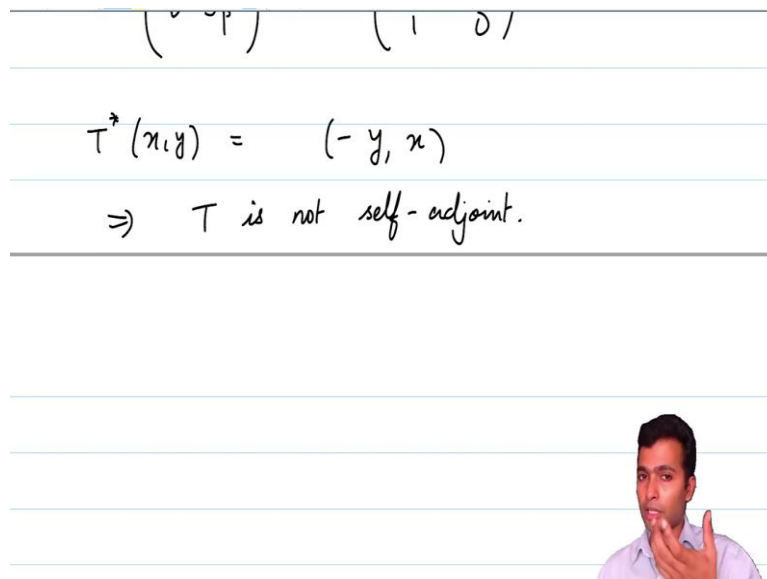 ( 1 0 )
T* (x,y) = (- y, x)
⇒ T is not self-adjoint.